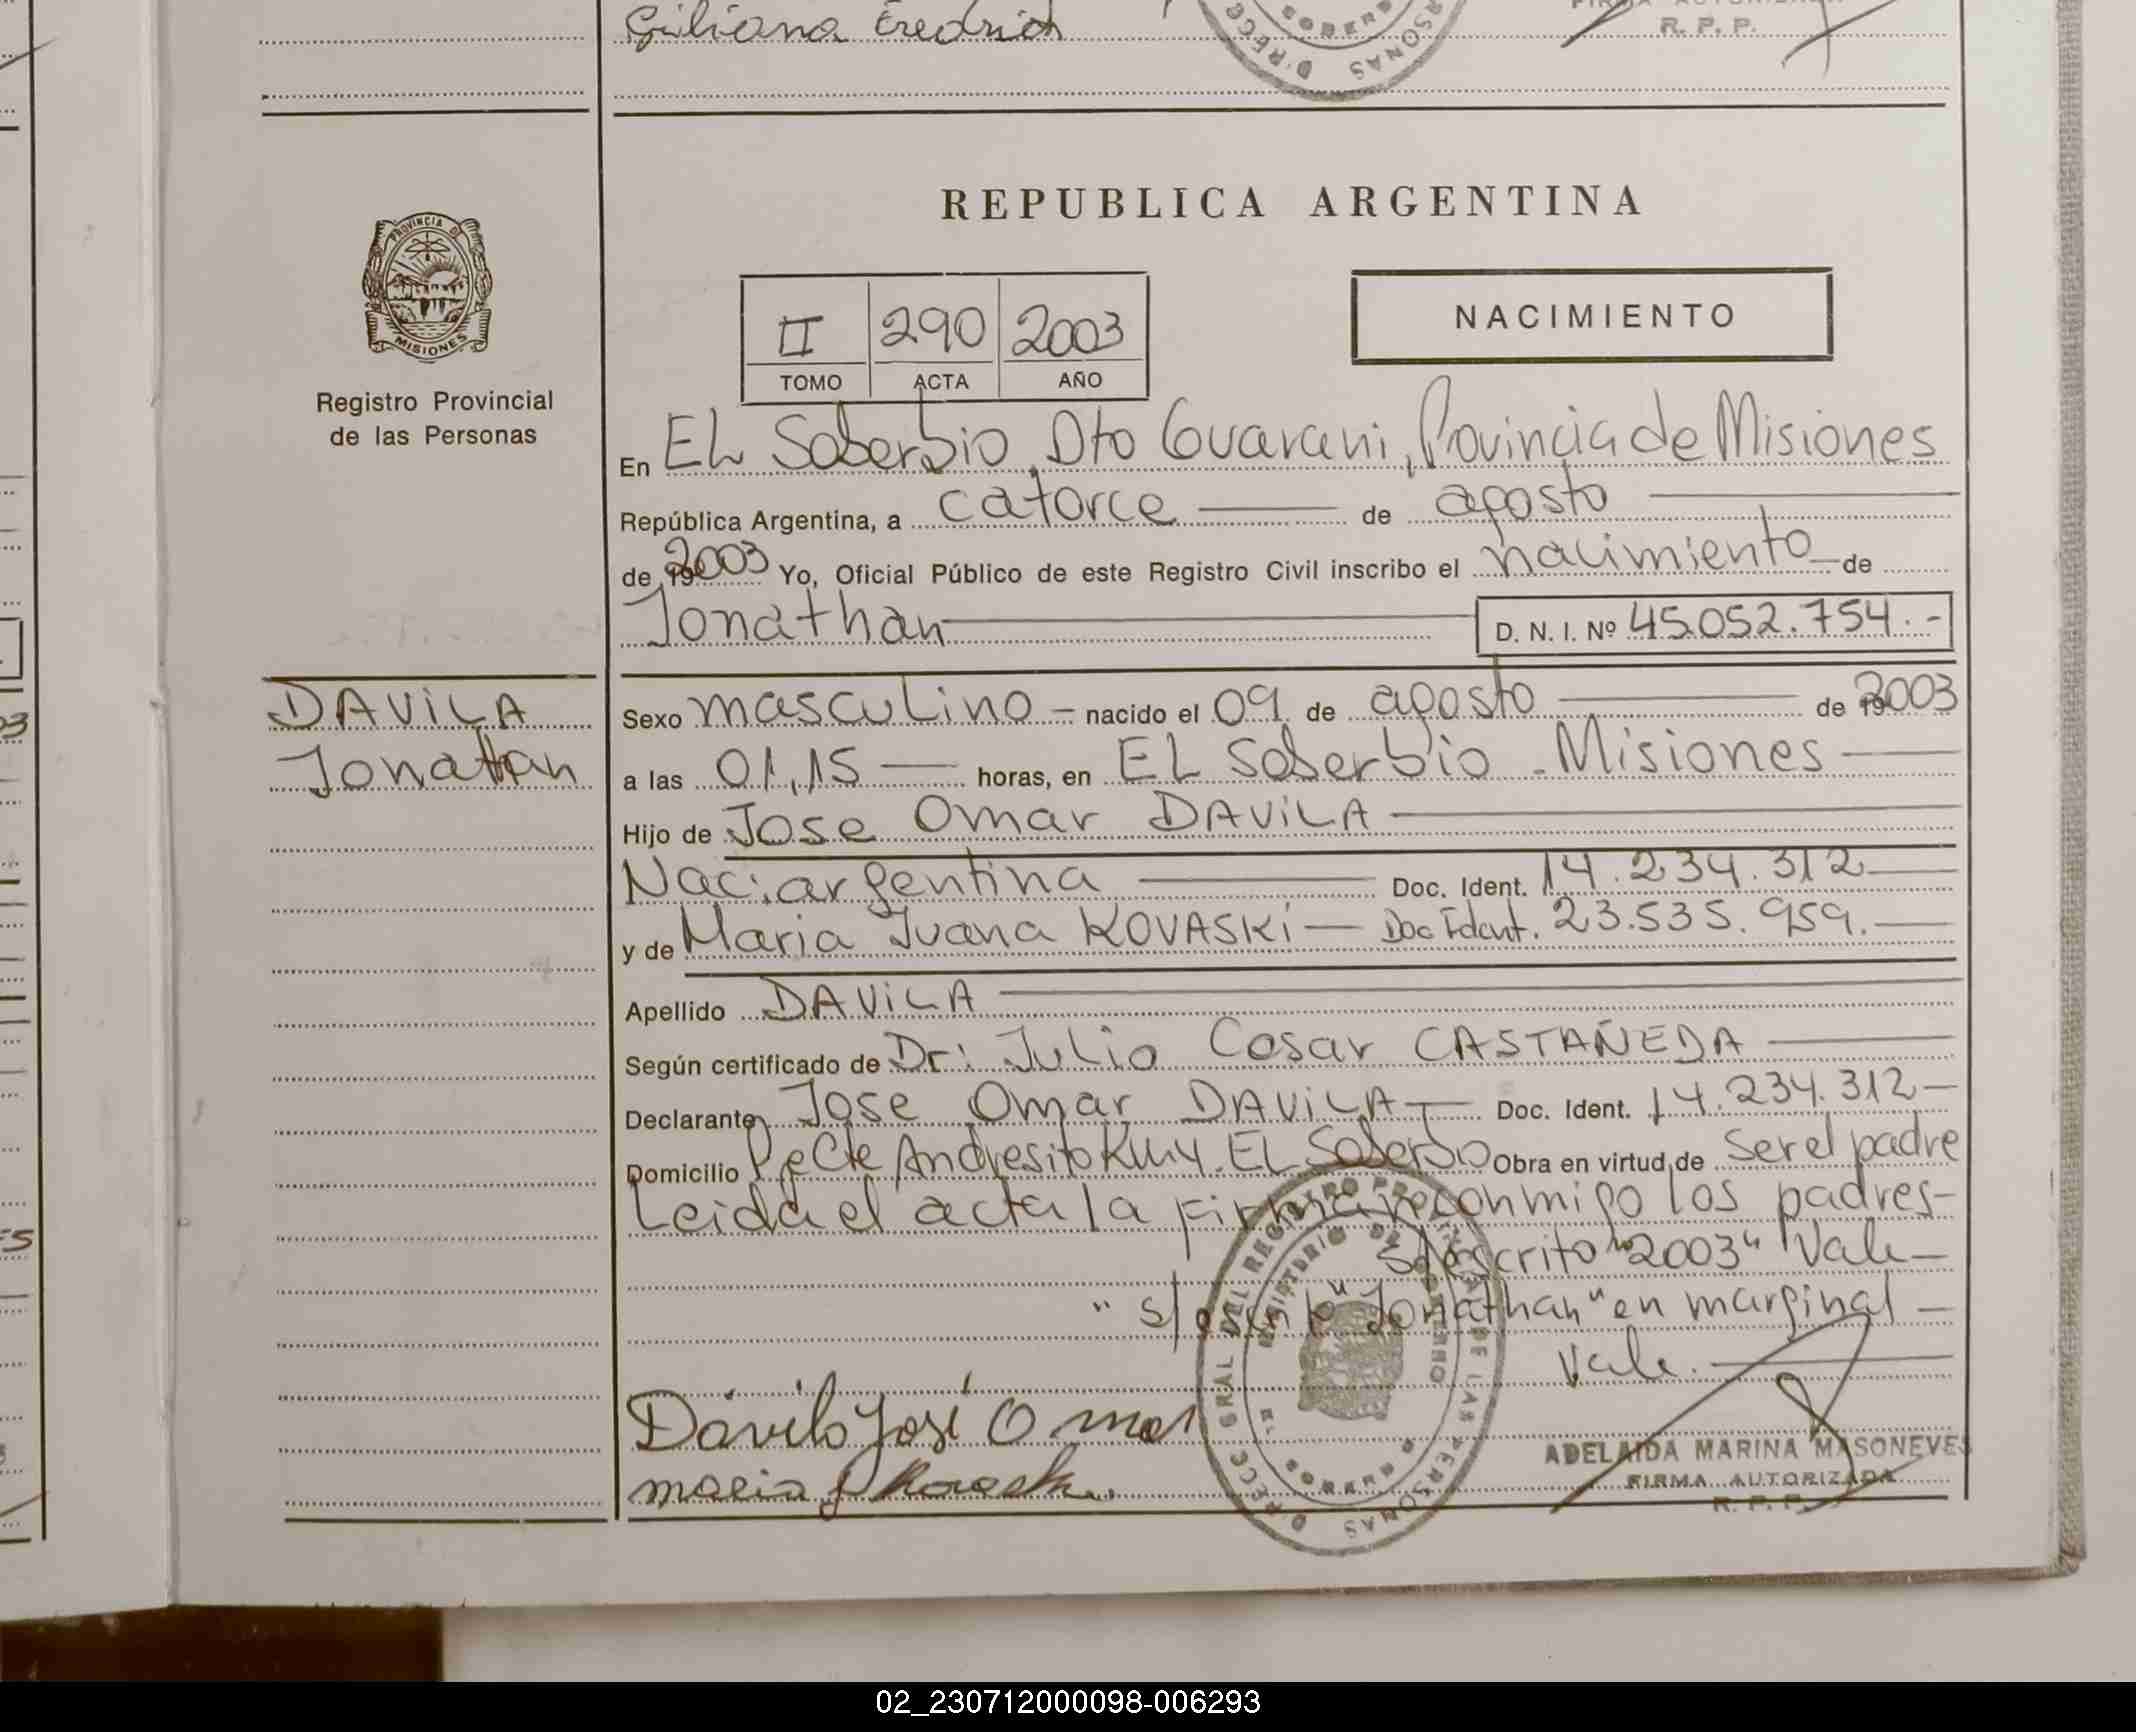 Giliana Fredrich
R. P. P.
REPUBLICA ARGENTINA
PROVINCIA DE
MISIONES
Registro Provincial
de las Personas
II 290 2003
TOMO ACTA AÑO
NACIMIENTO
En EL Soberbio, Dto Guarani, Provincia de Misiones
República Argentina, a catorce de agosto
de 2003 Yo, Oficial Público de este Registro Civil inscribo el nacimiento de
Jonathan D. N. I. Nº 45.052.754.-
DAVILA
Jonathan
Sexo masculino - nacido el 09 de agosto de 2003
a las 01,15 horas, en EL Soberbio - Misiones
Hijo de Jose Omar DAVILA
Nac: argentina Doc. Ident. 14.234.312
y de Maria Juana KOVASKi - Doc Ident. 23.535.959.
Apellido DAVILA
Según certificado de Dr: Julio Cesar CASTAÑEDA
Declarante Jose Omar DAVILA Doc. Ident. 14.234.312
Domicilio Pje Cte Andresito Km 4. EL Soberbio Obra en virtud de ser el padre
Leida el acta la firman conmigo los padres-
S/escrito "2003" Vale
" S/escrito "Jonathan" en marginal
Vale.
Dávila José Omar
maria J Kovaski
DIRECC GRAL DEL REGISTRO PROVINCIAL DE LAS PERSONAS
MINISTERIO DE GOBIERNO
ADELAIDA MARINA MASONEVES
FIRMA AUTORIZADA
R. P. P.
02_230712000098-006293